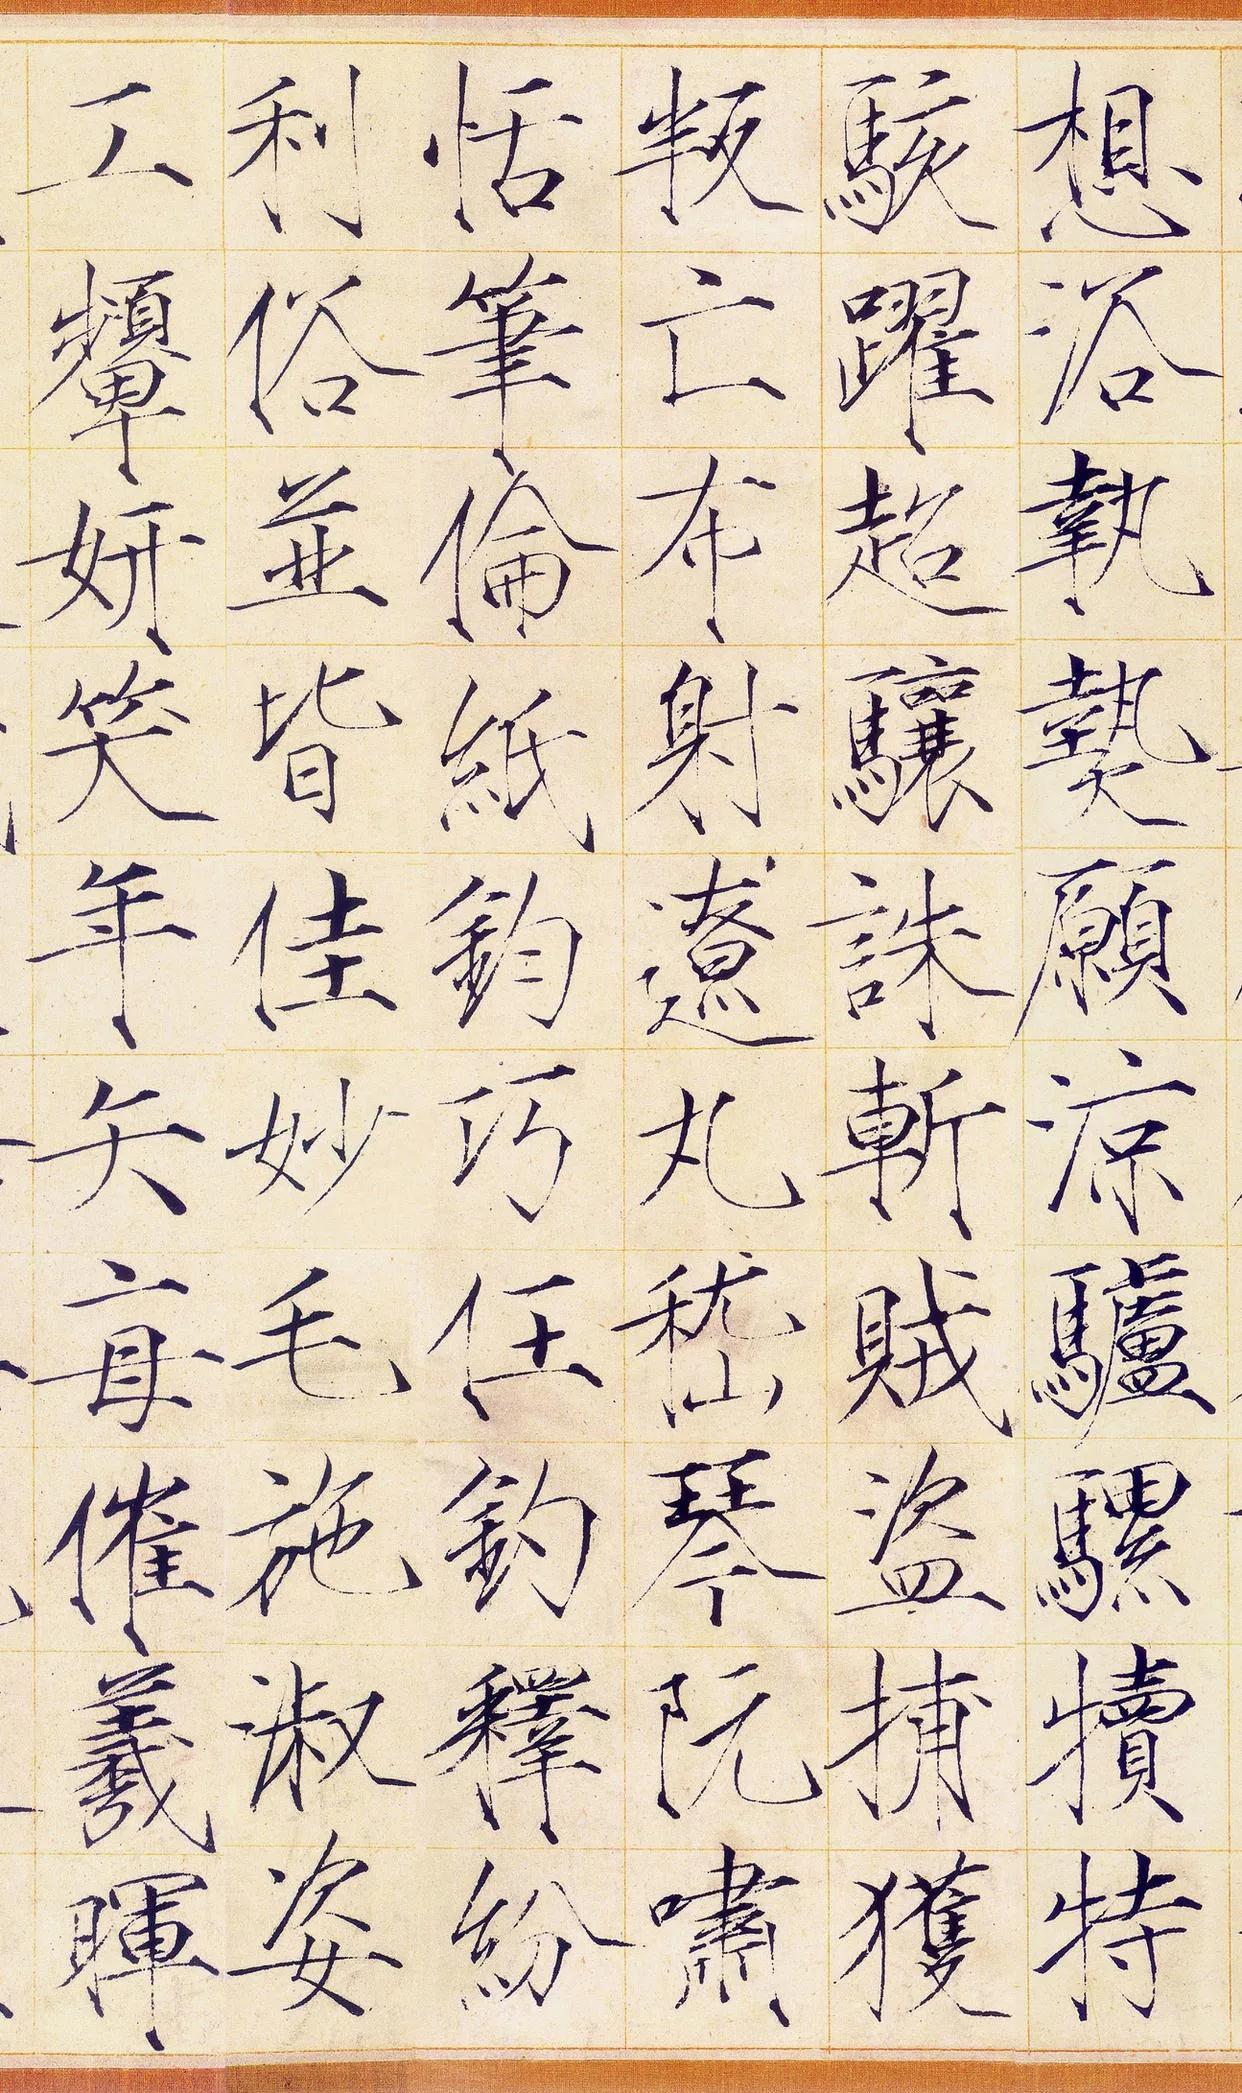 想浴執熱願涼驢騾犢特
駭躍超驤誅斬賊盜捕獲
叛亡布射遼丸嵇琴阮嘯
恬筆倫紙鈞巧任釣釋紛
利俗並皆佳妙毛施淑姿
工顰妍笑年矢每催羲暉